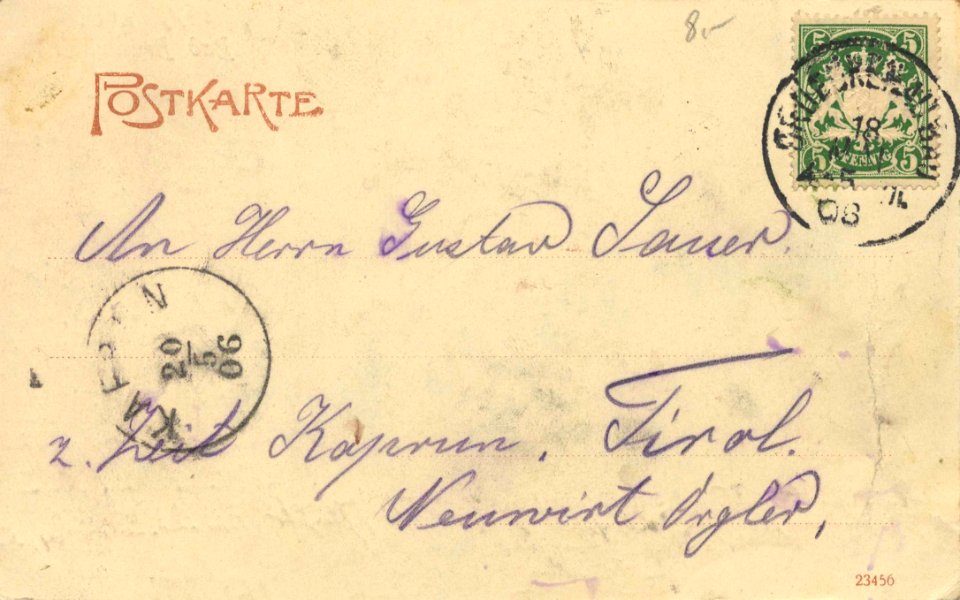 8.-
POSTKARTE
5 5
18
MAI
5 5
06
An Herrn Gustav Sauer.
KAPRUN
20
5
06
z. Zeit Kaprun, Tirol.
Neuwirt Orgler,
23456